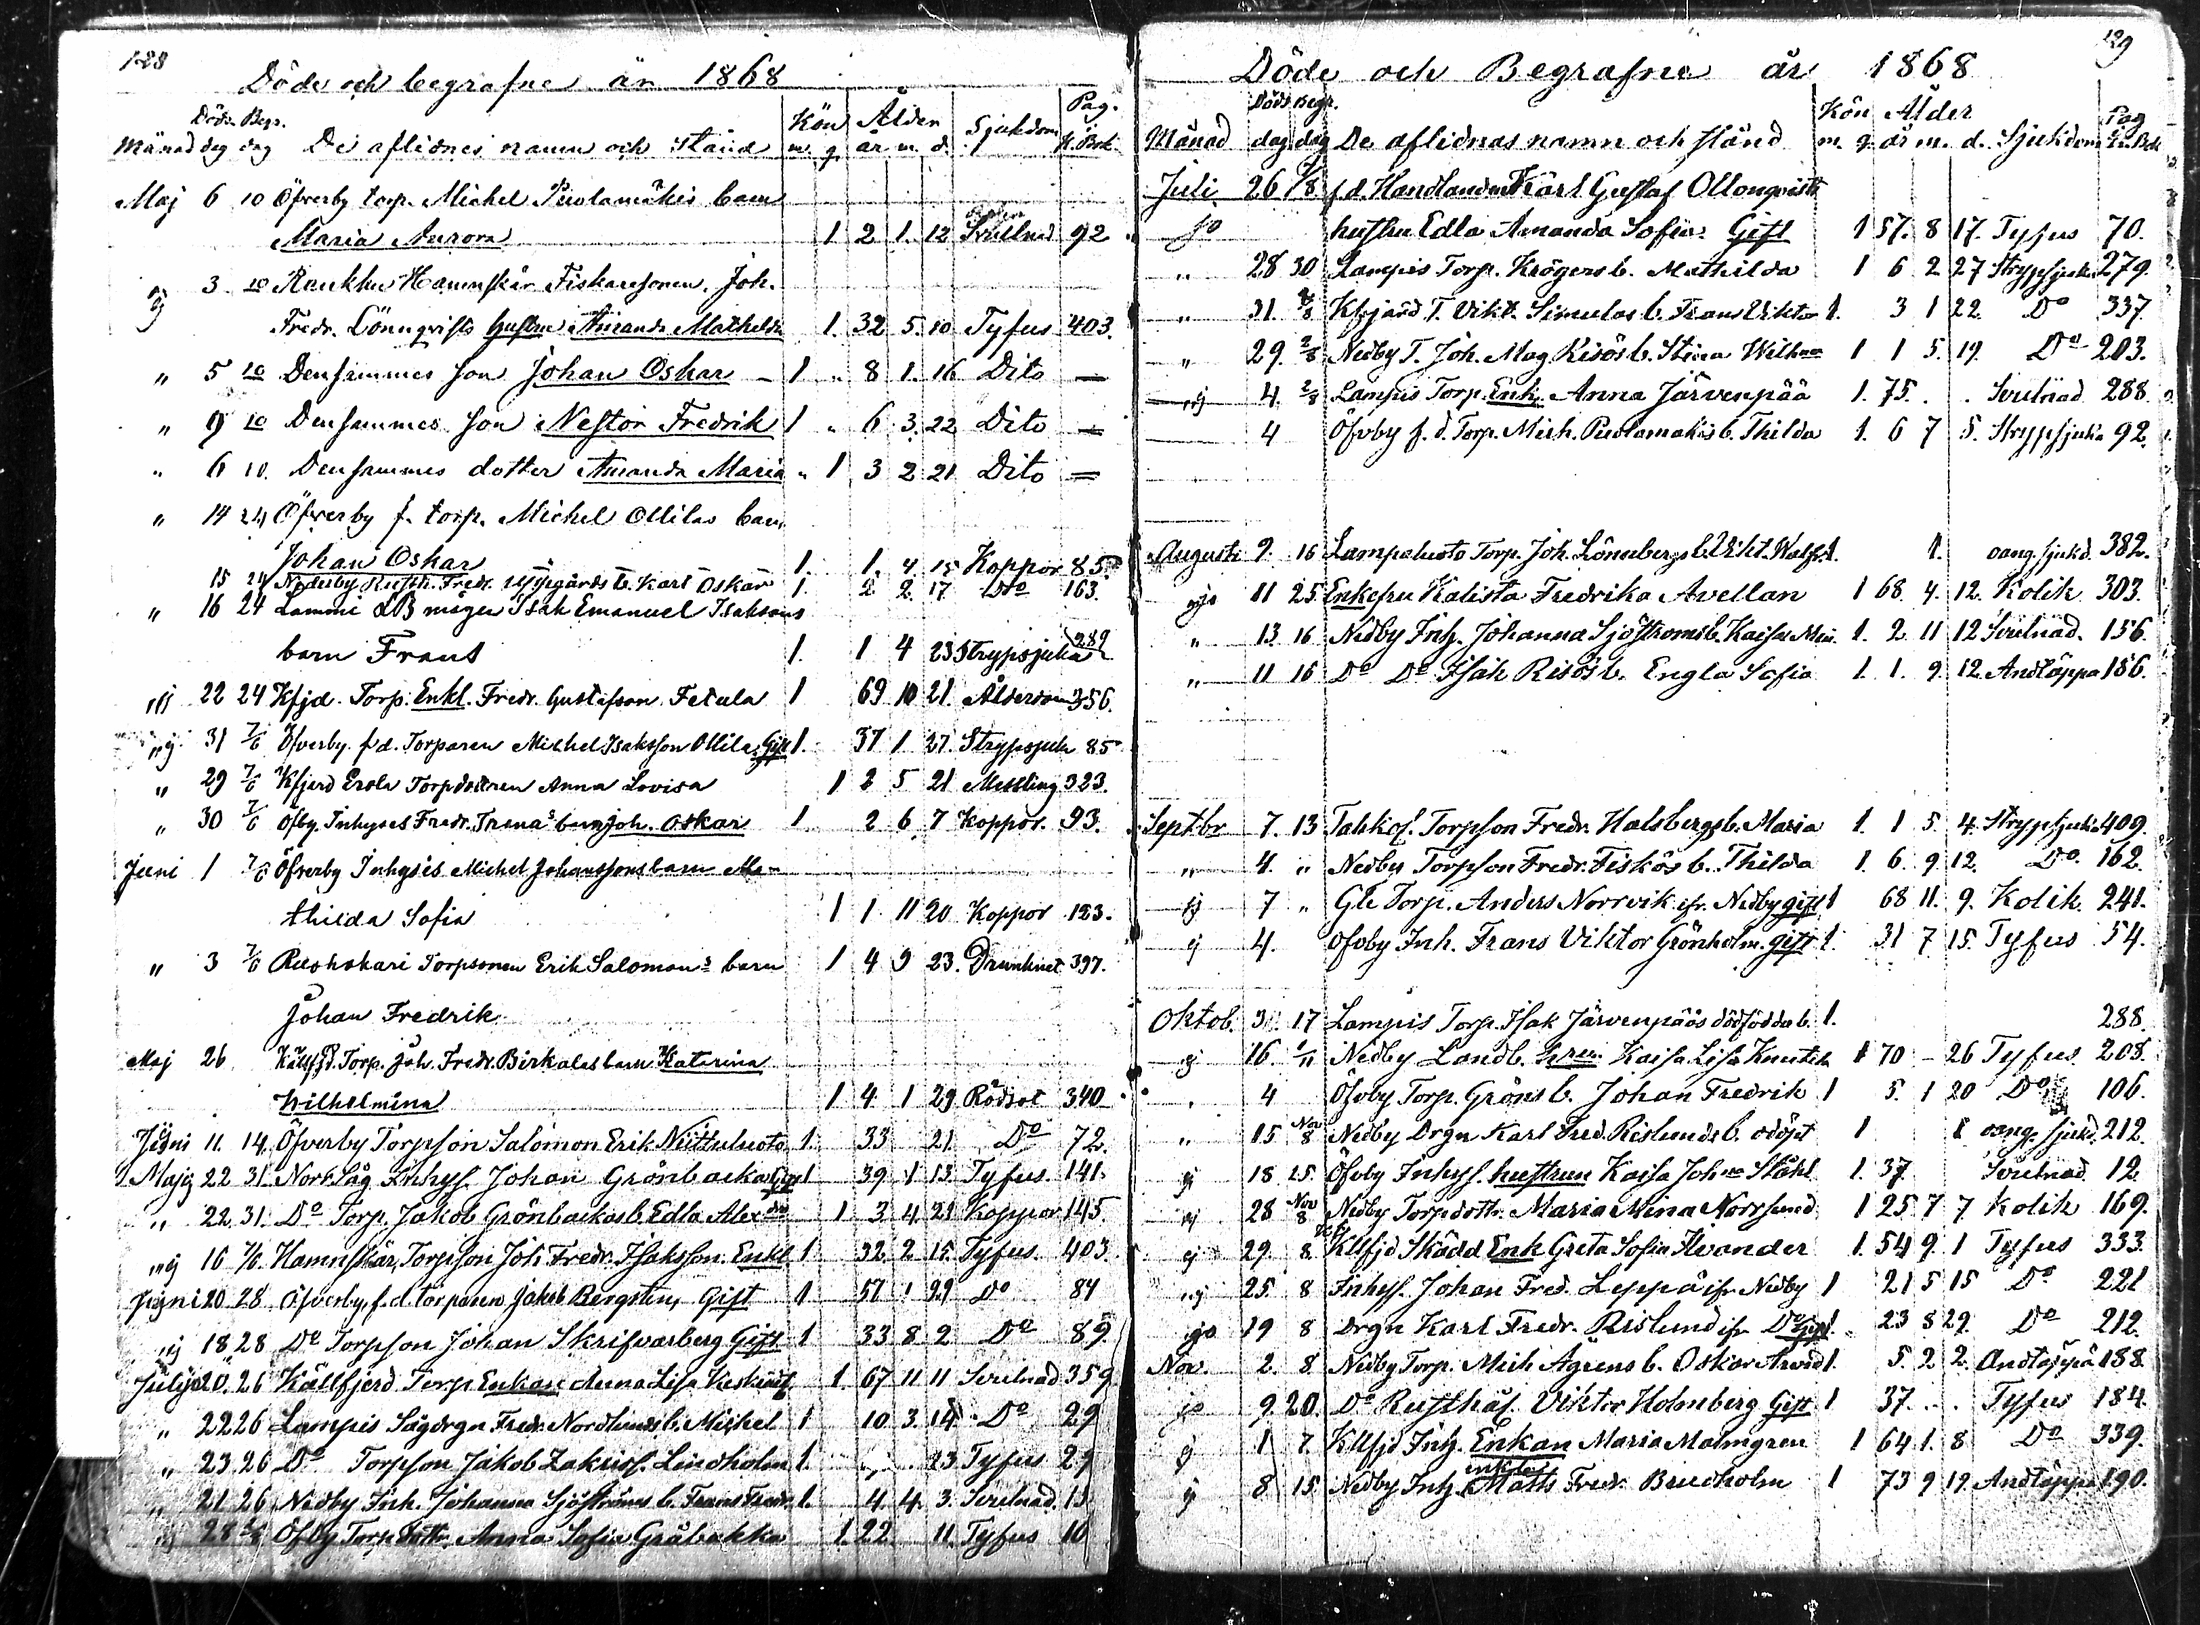 128
Döde och begrafne år 1868
Månad Döds dag Begr. dag De aflidnes namn och stånd Kön m. q. Ålder år m. d. Sjukdom Pag. K. Bok
Maj 6 10 Öfverby torp. Michel Puolamäkis barn
Maria Aurora 1 2 1. 12 Svullnad 92
3 10 Raukku Hamnskär Fiskaresonen Joh.
Fredr. Lönnqvists hustru Amanda Mathilda 1 32 5 10 Tyfus 403.
" 5 10 Densammes son Johan Oskar 1 " 8 1. 16 Dito —
" 9 10 Densammes son Nestor Fredrik 1 " 6 3. 22 Dito —
" 6 10. Densammes dotter Amanda Maria " 1 3 2 21 Dito —
" 14 24 Öfverby f. torp. Michel Ollilas barn
Johan Oskar 1. 1. 4 15 Koppor 85
15 24 Nederby Fredr. b. Karl Oskar 1. 2 2 17 Do 163.
" 16 24 Lammi mågen Isak Emanuel Isaksons
barn Frans 1. 1 4 23 Strypsjuka 289
22 24 Kfjd. Torp. Enkl. Fredr. Gustafson Fetula 1 69 10 21. Ålderdom 356.
31 7/6 Öfverby f d. Torparen Michel Isaksson Ollila Gift 1. 37 1 27 Strypsjuk 85
" 29 7/6 Kfjerd Erola Torpdottren Anna Lovisa 1 2 5 21 Messling 323.
" 30 7/6 Öfby. Inhyses Fredr. Trena's barn Joh. Oskar 1. 2 6 7 Koppor. 93.
Juni 1 7/6 Öfverby Inhyses Michel Johanssons barn Ma-
thilda Sofia 1 1 11 20 Koppor 123.
" 3 7/6 Ruohokari Torpsonen Erik Salomons barn 1 4 9 23. Drunknat 397.
Johan Fredrik
Maj 26 Källfjd. Torp. Joh. Fredr. Birkalas barn Katarina
Wilhelmina 1 4 1 29 Rödsot 340
Juni 11. 14. Öfverby Torpson Salomon Erik Niittuluoto 1. 33 21. Do 72.
Maj 22 31. Norr Såg Inhys. Johan Grönbacka Gift 1 39 1 13. Tyfus. 141.
" 22 31. Do Torp. Jakob Grönbackas b. Edla 1. 3 4. 21 Koppor 145.
16 7/6. Hamnskär, Torpson Joh. Fredr. Isaksson. Enkl 1. 32. 2 15. Tyfus. 403.
Juni 20 28 Öfverby, f. d. torparen Jakob Bergsten, Gift 1 57 1 29 Do 84
18 28 Do Torpson Johan Skrifvarberg Gift 1 33 8 2 Do 89
Juli 20. 26 Källfjerd Torp. Enkan Anna Lisa 1. 67 11 11 Svullnad 359
" 22 26 Lampis Sågdrgn Fredr. Nordlunds b. Michel 1 10 3. 14 Do 29
" 23. 26 Do Torpson Jakob Lindholm 1. " 23 Tyfus 29
" 21 26 Nedby Inh. Johanna Sjöströms b. Frans Fredr. 1. 4. 4. 3. Svullnad. 13
28 2/8 Öfby Torp. dottr. Anna Sofia Gråbakka 1. 22. 11. Tyfus 10
129
Döde och Begrafne år 1868
Månad Döds dag Begr. dag De aflidnas namn och stånd Kön m. q. Ålder år m. d. Sjukdom Pag
Juli 26 1/8 f. d. Handlanden Karl Gustaf Ollonqvists
hustru Edla Amanda Sofia. Gift 1 57. 8 17. Tyfus 70.
" 28 30 Lampis Torp. Krögers b. Mathilda 1 6 2 27 Strypsjuka 279.
" 31. 2/8 Kfjärd T. Vikt. Simulas b. Frans Viktor 1. 3 1 22. Do 337
" 29. 2/8 Nedby T. Joh. Mag Risös b. Stina Wilhna 1 1 5. 19. Do 203.
4. 2/8 Lampis Torp. Enk. Anna Järvenpää 1. 75. . . Svullnad 288.
4 Öfvby f. d. Torp. Mich. Puolamäkis b. Thilda 1. 6 7 5. Strypsjuka 92.
Augusti 9. 16 Lampaluoto Torp. Joh. Lönnbergs b. Vikt. Walfr. 1. 1. oang. sjukd. 382.
11 25. Enkefru Kalista Fredrika Avellan 1 68. 4. 12. Kolik 303.
" 13. 16 Nedby Inh. Johanna Sjöströms b. Kaisa Min. 1. 2 11 12 Svullnad. 156.
" 11 16 Do Do Isak Risös b. Engla Sofia 1. 1. 9. 12. Andtäppa 156.
Septbr 7. 13 Torpson Fredr. Halsbergs b. Maria 1. 1 5. 4. Strypsjuka 409.
" 4. " Nedby Torpson Fredr. Fiskös b. Thilda 1. 6. 9 12. Do. 162.
7 " Gle Torp. Anders Norrvik ifr. Nedby gift 1 68 11. 9. Kolik. 241.
4. Öfvby Inh. Frans Viktor Grönholm. gift 1. 31 7 15. Tyfus 54.
Oktob. 3 17 Lampis Torp. Isak Järvenpääs dödfödda b. 1. 288.
16. 1/11 Nedby Landb. hru Kaisa Lisa 1 70 – 26 Tyfus 208.
4 Öfvby Torp. Gröns b. Johan Fredrik 1 5. 1 20 Do 106.
" 15 Nov 8 Nedby Drgn Karl Fred. Rislunds b. odöpt 1 1 oang. sjukd. 212.
18 25 Öfvby Inhys. hustrun Kaisa Johna Ståhl 1. 37 Svullnad 12.
28 Nov 8 Nedby Torpdottr. Maria Mina Norrlund 1 25 7 7. Kolik 169.
29. 8 Kllfjd Skädd Enk Greta Sofia Alvander 1. 54 9. 1 Tyfus 333.
25 8 Inhys. Johan Fred. Leppä ifr Nedby 1 21 5 15 Do 221
19 8 Drgn Karl Fredr. Rislund ifr. Do Gift. 23 8 29. Do 212.
Nov. 2. 8. Nedby Torp. Mich Ågrens b. Oskar Arvid 1. 5. 2 2. Andtäppa 188.
9 20. Do Rusthål. Viktor Holmberg Gift 1 37. . . Tyfus 184.
1 7 Kllfjd Inh. Enkan Maria Malmgren 1 64 1. 8 Do 339.
8 15. Nedby Inh. enkl. Matts Fredr. Bredholm 1 73 9 19. Andtäppa 190.